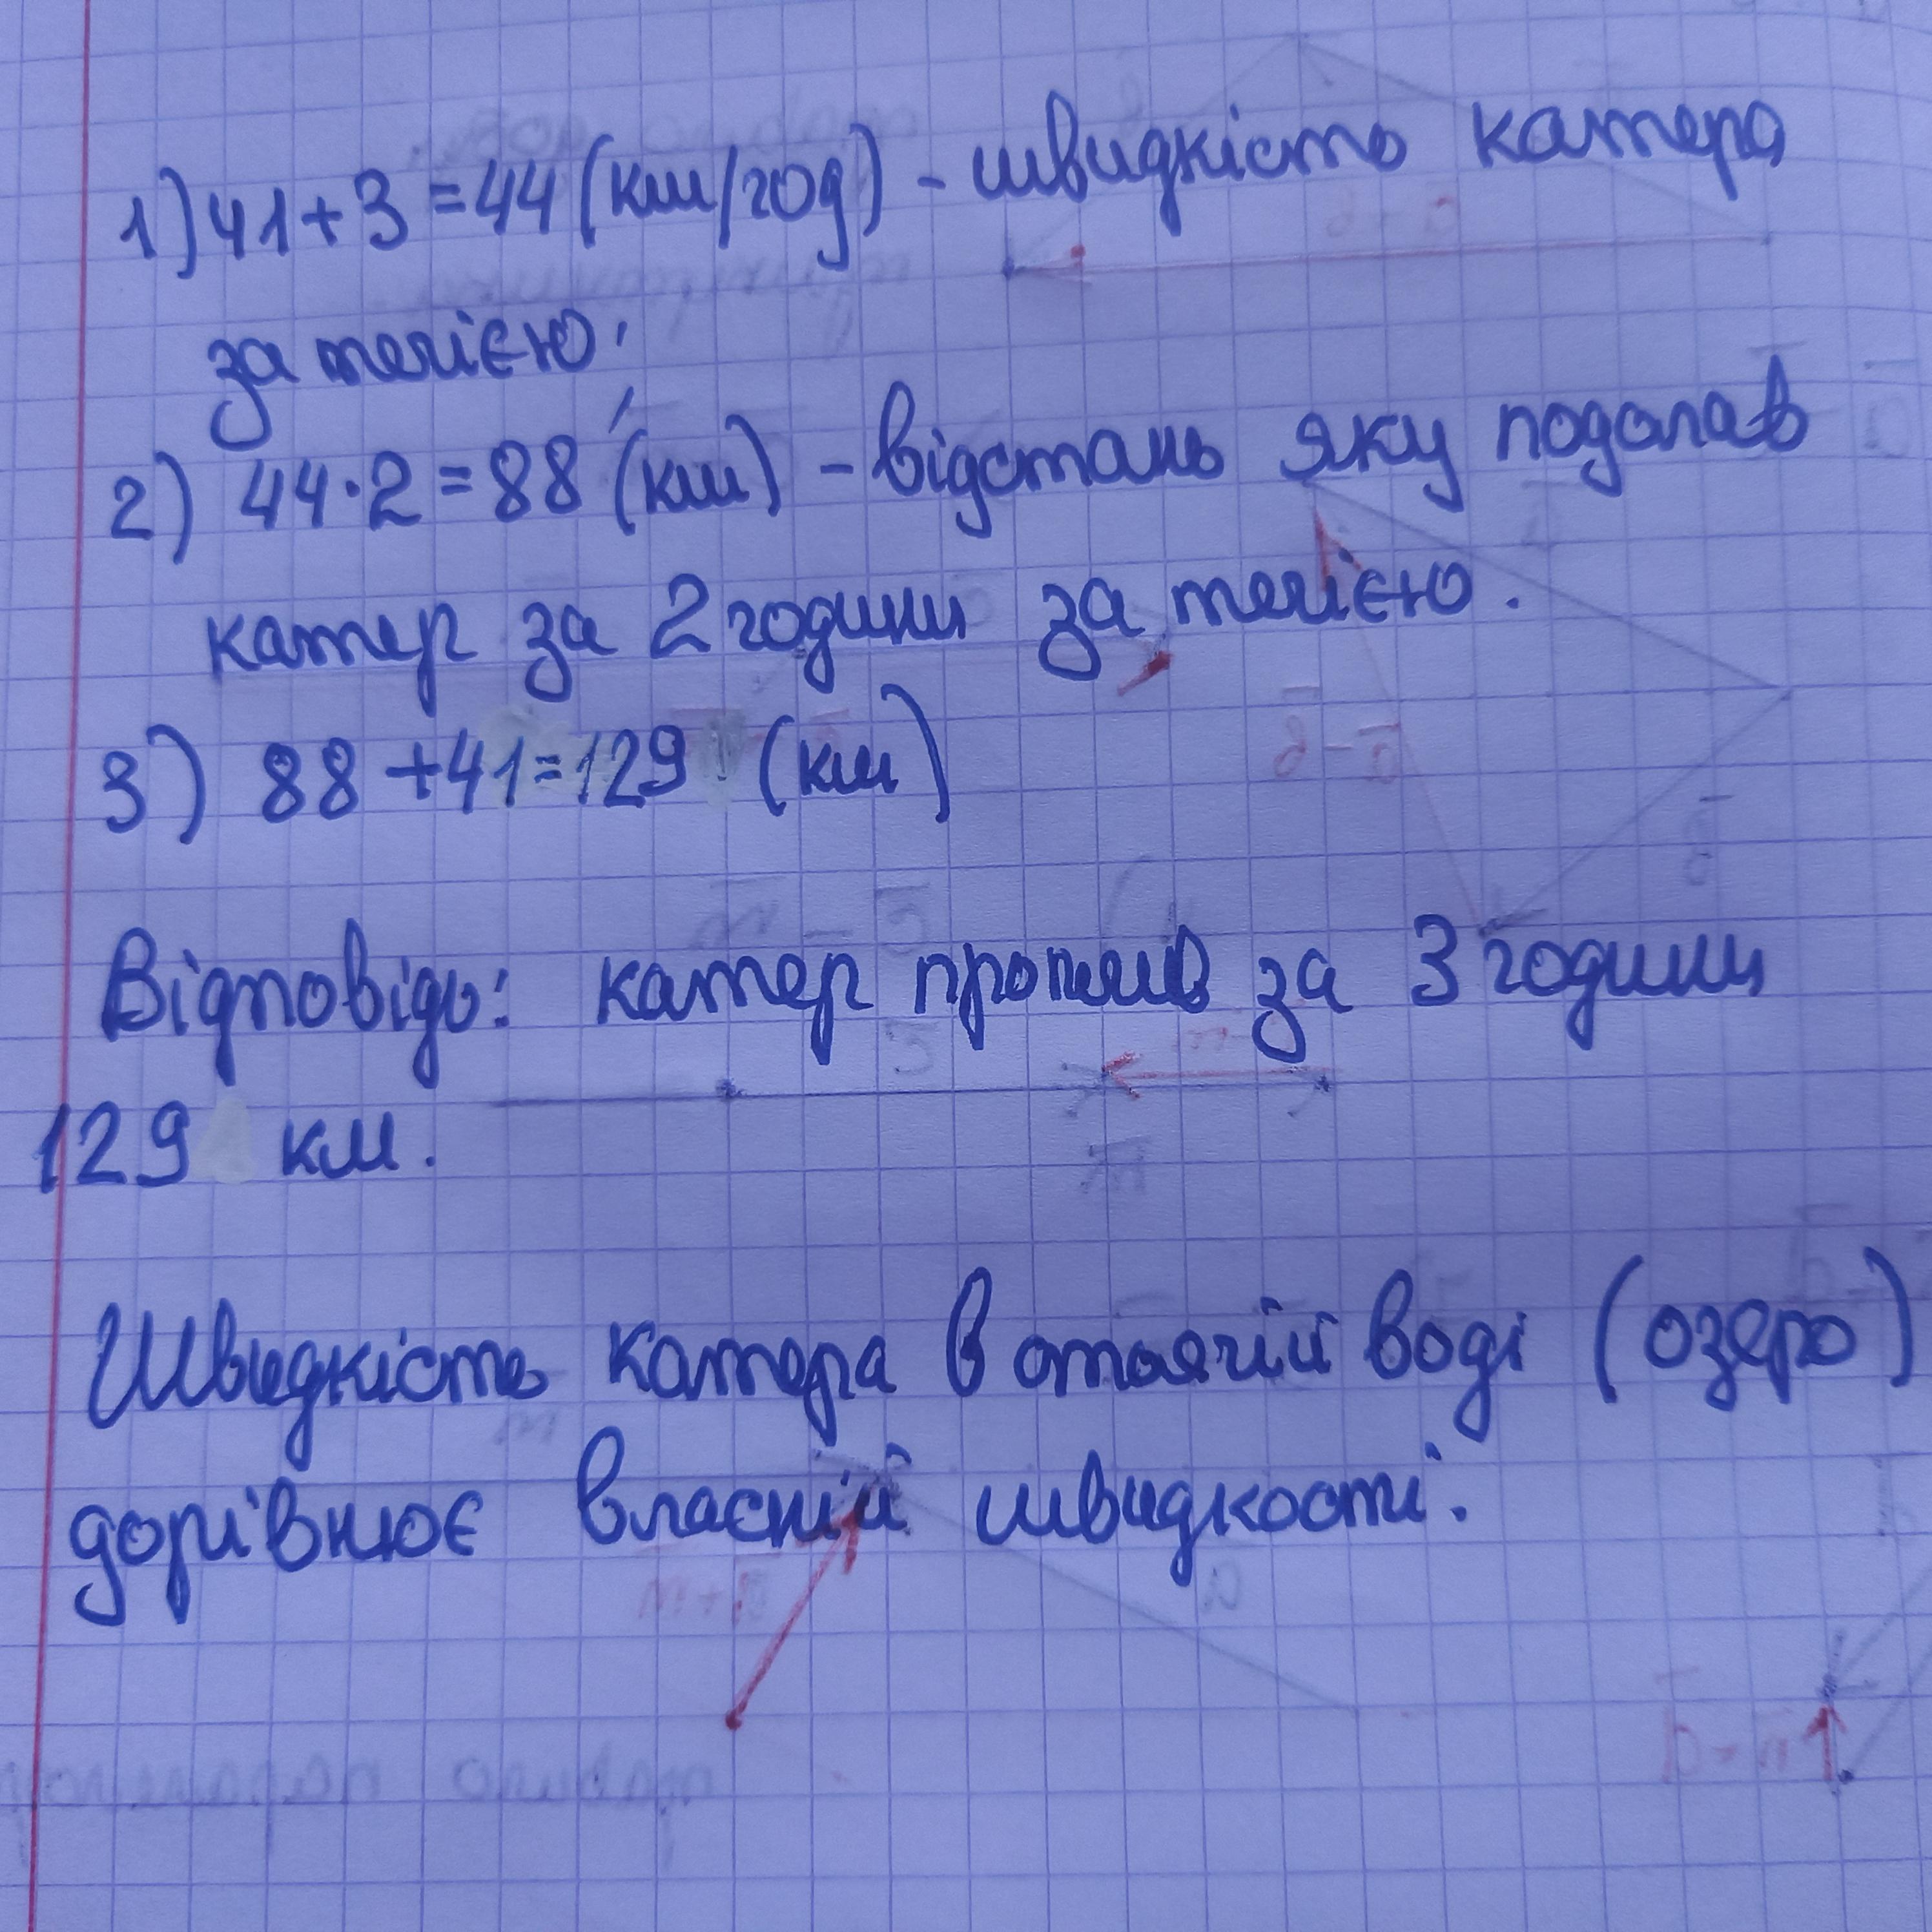 1) 41+3=44 (км/год) - швидкість катера
за течією,
2) 44·2=88 (км) - відстань яку подолав
катер за 2 години за течією.
3) 88+41=129 (км)
Відповідь: катер проплив за 3 години
129 км.
Швидкість катера в стоячій воді (озеро)
дорівнює власній швидкості.